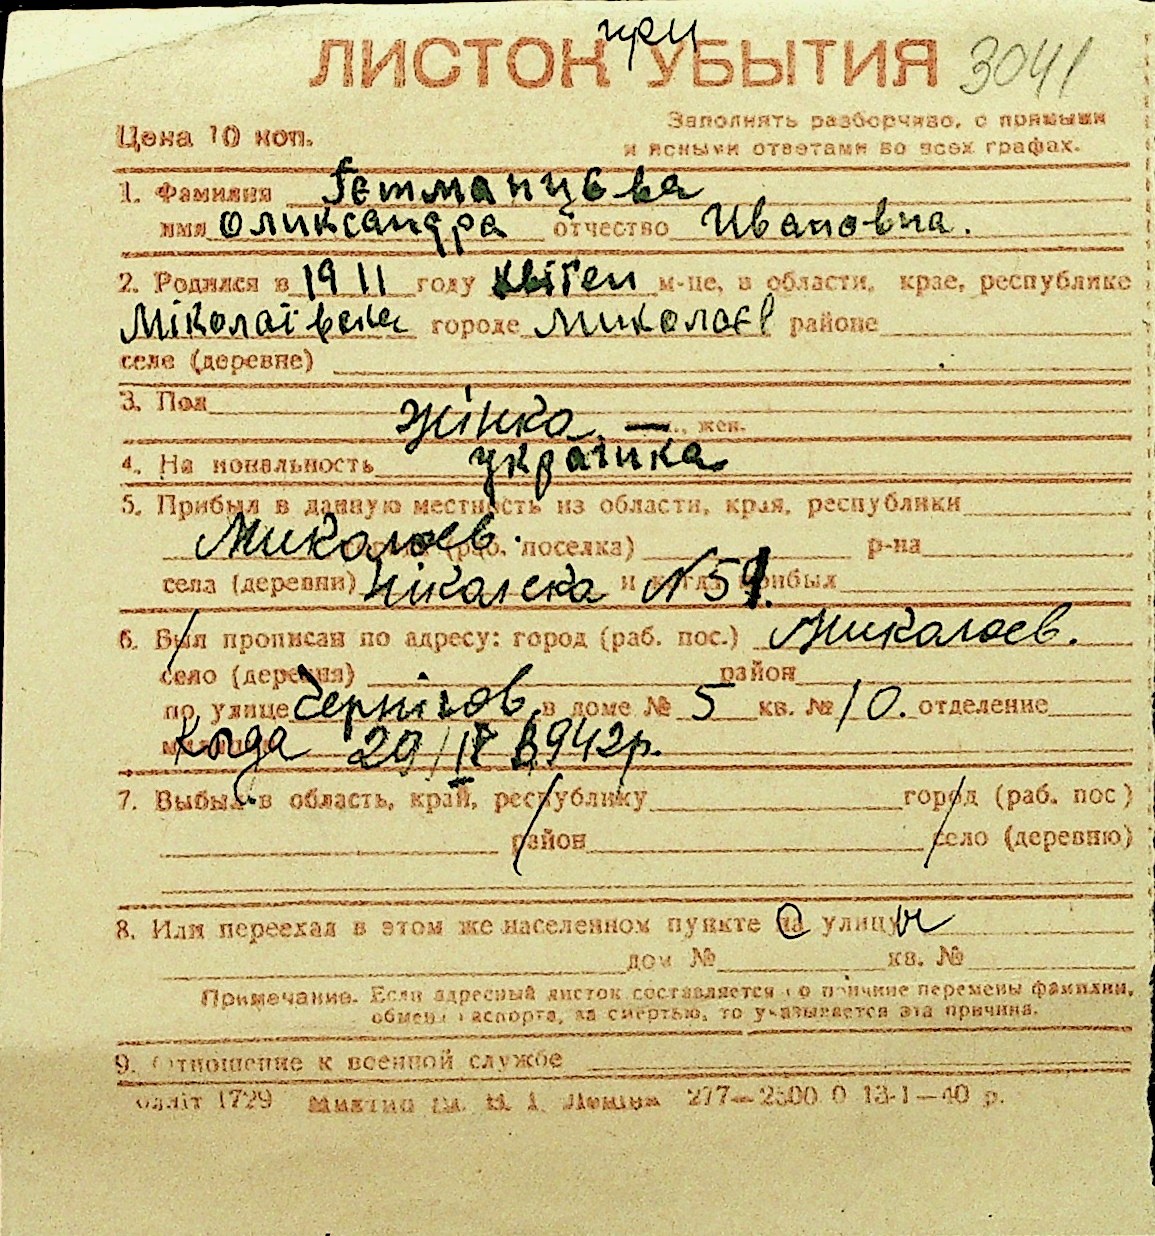 при
ЛИСТОК УБЫТИЯ 3041
Цена 10 коп.
Заполнять разборчиво, с прямыми
и ясными ответами во всех графах.
1. Фамилия Гетманцева
имя Олександра отчество Ивановна.
2. Родился в 1911 году квітен м-це, в области, крае, республике
Міколаївська городе Миколаєв районе
селе (деревне)
3. Пол жінка, жен.
4. Национальность українка
5. Прибыл в данную местность из области, края, республики
Миколаев. (раб. поселка) р-на
села (деревни) Нікалска и когда прибыл N 51.
6. Был прописан по адресу: город (раб. пос.) Миколаев.
село (деревня) район
по улице Чернігов в доме № 5 кв. № 10. отделение
Когда 20/IV 1942р.
7. Выбыл в область, край, республику город (раб. пос)
район село (деревню)
8. Или переехал в этом же населенном пункте с улицы
дом № кв. №
Примечание. Если адресный листок составляется по причине перемены фамилии,
обмена паспорта, за смертью, то указывается эта причина.
9. Отношение к военной службе
облліт 1729 277—2500 0 13-1—40 р.